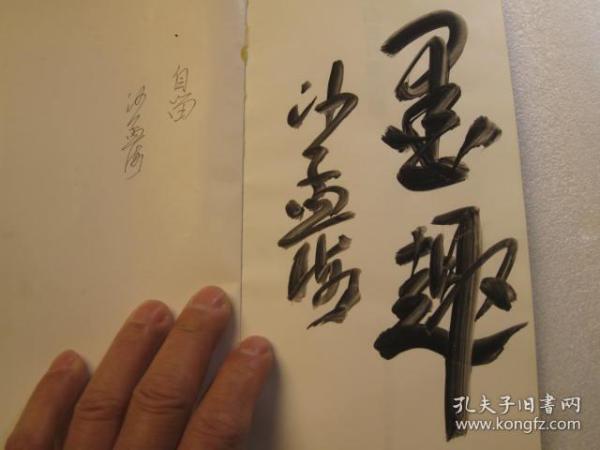 墨趣
沙孟海
自留
沙孟海
孔夫子旧书网
www.kongfz.com